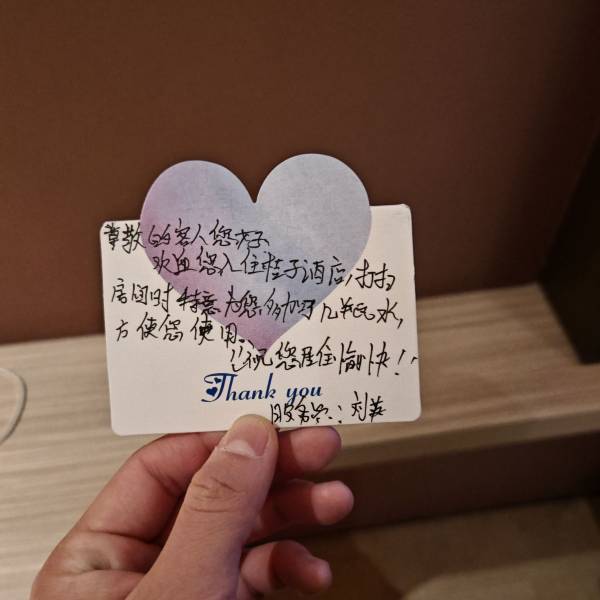 尊敬的客人您好
欢迎您入住桔子酒店,打扫
房间时特意为您多加了几瓶水,
方便您使用。
祝您居住愉快!
Thank you
服务员:刘